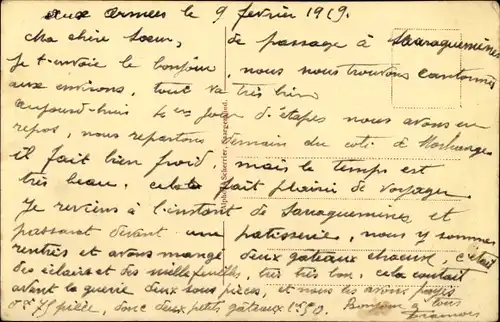 aux armées le 9 février 1919.
Ma chère Soeur, de passage à Sarraguemines
Je t'envoie le bonjour, nous nous trouvons cantonnés
aux environs, tout va très bien
aujourd'hui 1er jour d'étapes nous avons eu
repos, nous repartons demain du coté d'Morhange
il fait bien froid mais le temps est
très beau, cela fait plaisir de voyager
Je reviens à l'instant de Sarraguemines et
passant devant une patisserie, nous y sommes
rentrés et avons mangé deux gateaux chacun, c'était
des éclairs et des mille feuilles, très très bon, cela coutait
avant la guerre deux sous pièce, et nous les avons payés
0f 75 pièce, donc deux petits gâteaux 1f50. Bonjour à tous
Scherrer, Saargemünd.